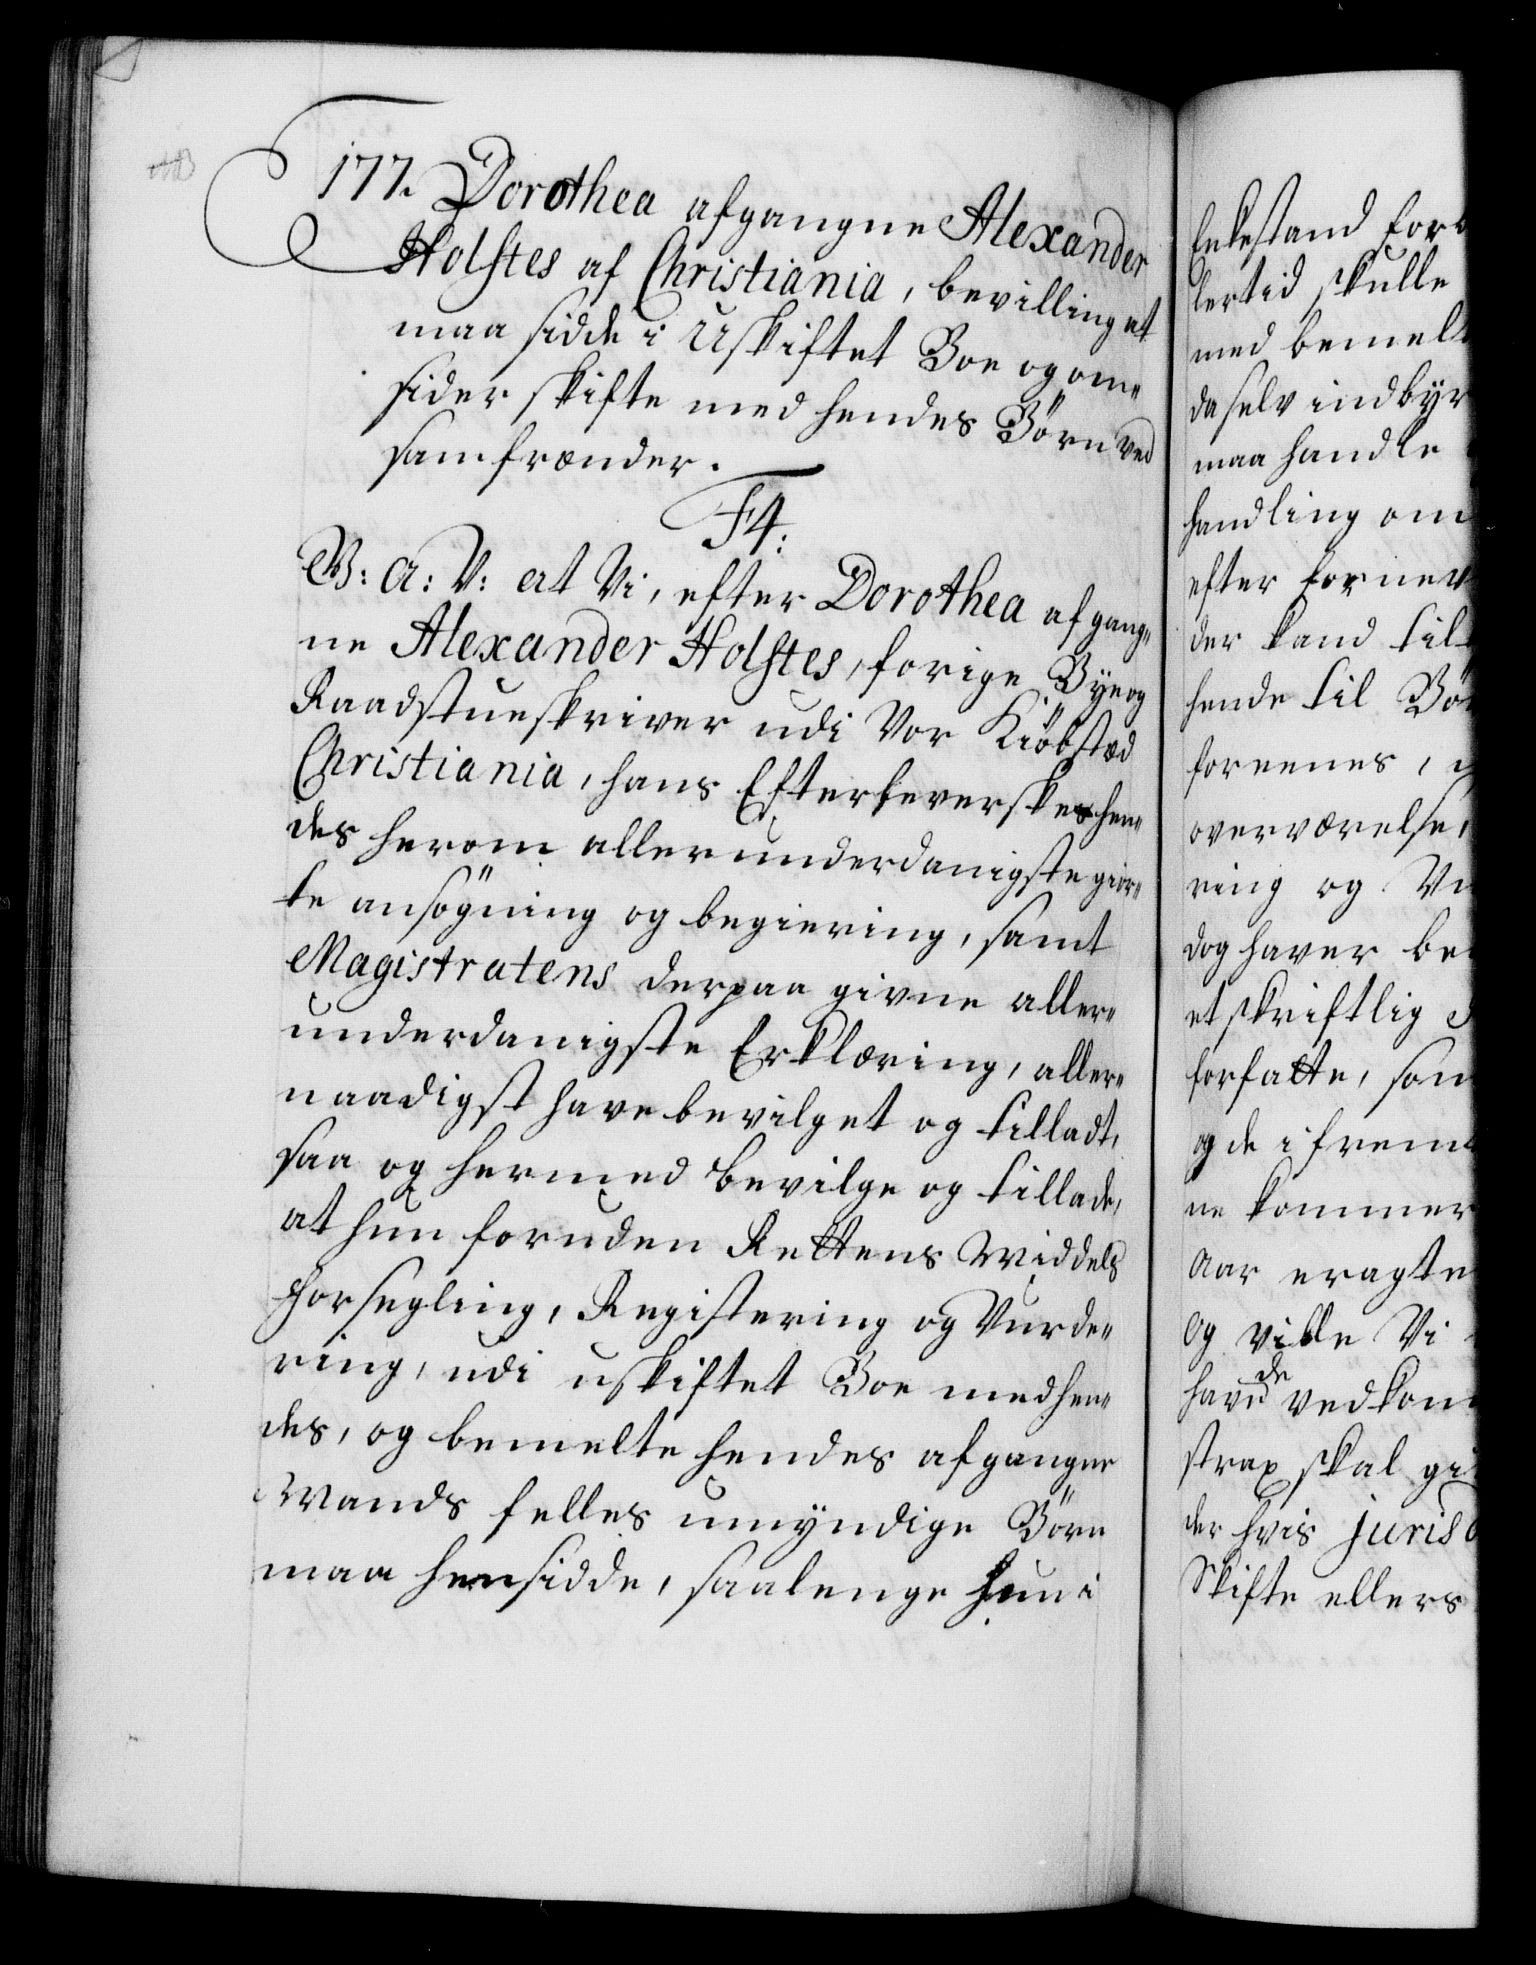 177. Dorothea afgangne Alexander
Holstes af Christiania, bevilling at
maa sidde i Uskiftet Boe og om„
sider skifte med hendes Börn ved
samfrænder.
F4:
W: A: V: at Vi, efter Dorothea afgang„
ne Alexander Holstes, forige Bye og
Raadstueskriver udi Vor Kiöbsted
Christiania, hans Efterleverskes hen„
des herom allerunderdanigste gior„
te ansögning og begiering, samt
Magistratens derpaa givne aller„
underdanigste Erklæring, aller„
naadigst have bevilget og tilladt,
saa og hermed bevilge og tillade,
at hun foruden Rettens Middels
Forsegling, Registering og Vurde„
ring, udi uskiftet Boe med hen„
des, og bemelte hendes afgangne
Mands felles umyndige Börn
maa hensidde, saalenge hun i
Enkestand for
lertid skulle
med bemelt
da selv indbyr
maa handle
handling om
efter fornev
der kand til
hende til Bö
foreenes,
overværelse,
ring og Vu
dog haver be
et skriftlig
forfatte, som
og de i frem
ne kommer
Aar eragte
Og ville Vi
havede vedkom
strax skal gi
der hvis jurisd
Skifte ellers